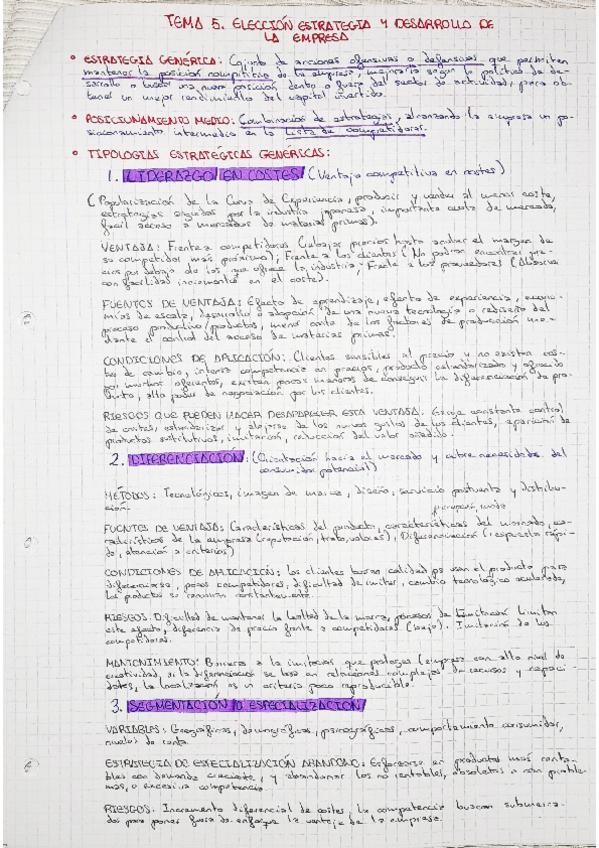 TEMA 5. ELECCIÓN ESTRATEGIA Y DESARROLLO DE
LA EMPRESA
• ESTRATEGIA GENÉRICA: Cojunto de acciones ofensivas o defensivas que permiten
mantener la posición competitiva de la empresa, mejorarla según la política de de-
sarrollo o buscar una nueva posición dentro o fuera del sector de actividad, para ob-
tener un mejor rendimiento del capital invertido.
• POSICIONAMIENTO MEDIO: Combinación de estrategias, alcanzando la empresa un po-
sicionamiento intermedio en la lista de competidores.
• TIPOLOGIAS ESTRATÉGICAS GENÉRICAS:
1. LIDERAZGO EN COSTES (Ventaja competitiva en costes)
(Popularización de la Curva de Experiencia, producir y vender al menor coste,
estrategias seguidas por la industria japonesa, importante cuota de mercado,
facil acceso a mercados de material primas).
VENTAJA: Frente a competidores (trabajar precios hasta anular el margen de
su competidor más próximo); Frente a los clientes (No podrán encontrar pre-
cios por debajo de los que ofrece la industria); Frente a los proveedores (Absorve
con facilidad incrementos en el coste).
FUENTES DE VENTAJA: Efecto de aprendizaje, efecto de experiencia, econo-
mías de escala, desarrollo o adopción de una nueva tecnología o rediseño del
proceso productivo/productos, menor coste de los factores de producción me-
diante el control del acceso de materias primas.
CONDICIONES DE APLICACIÓN: Clientes sensibles al precio y no existen cos-
tes de cambio, intensa competencia en precios, producto estandarizado y ofrecido
por muchos oferentes, existen pocas maneras de conseguir la diferenciación de pro-
ducto, alto poder de negociación por los clientes.
RIESGOS QUE PUEDEN HACER DESAPARECER ESTA VENTAJA: Exige constante control
de costes, estandarizar y alejarse de los nuevos gustos de los clientes, aparición de
productos sustitutivos, imitación, reducción del valor añadido.
2. DIFERENCIACIÓN: (Orientación hacia el mercado y cubre necesidades del
consumidor potencial)
MÉTODOS: Tecnológicos, imagen de marca, diseño, servicio postventa y distribu-
ción.
FUENTES DE VENTAJAS: Características del producto, características del mercado, ca-
racterísticas de la empresa (reputación, trato, valores), (respuesta rápi-
da, atención a criterios)
CONDICIONES DE APLICACIÓN: Los clientes buscan calidad ps usan el producto para
diferenciarse, pocos competidores, dificultad de imitar, cambio tecnológico acelerado,
los productos se renuevan constantemente.
RIESGOS: Dificultad de mantener la lealtad de la marca, procesos de imitación limitan
este efecto, diferencia de precio frente a competidores (bajo). Imitación de los
competidores.
MANTENIMIENTO: Barreras a la imitación que protegen (empresa con alto nivel de
creatividad, si la diferenciación se basa en relaciones complejas de recursos y capaci-
dades, la localización es un criterio poco reproducible.
3. SEGMENTACIÓN O ESPECIALIZACIÓN
VARIABLES: Geográficas, demográficas, psicográficas, comportamiento consumidor,
niveles de renta.
ESTRATEGIA DE ESPECIALIZACIÓN ABANDONO: Enfocarse en productos más renta-
bles con demanda creciente, y abandonar los no rentables, obsoletos o son proble-
mas, o excesiva competencia.
RIESGOS: Incremento diferencial de costes, la competencia buscan submerca-
dos para poner fuera de enfoque la ventaja de la empresa.